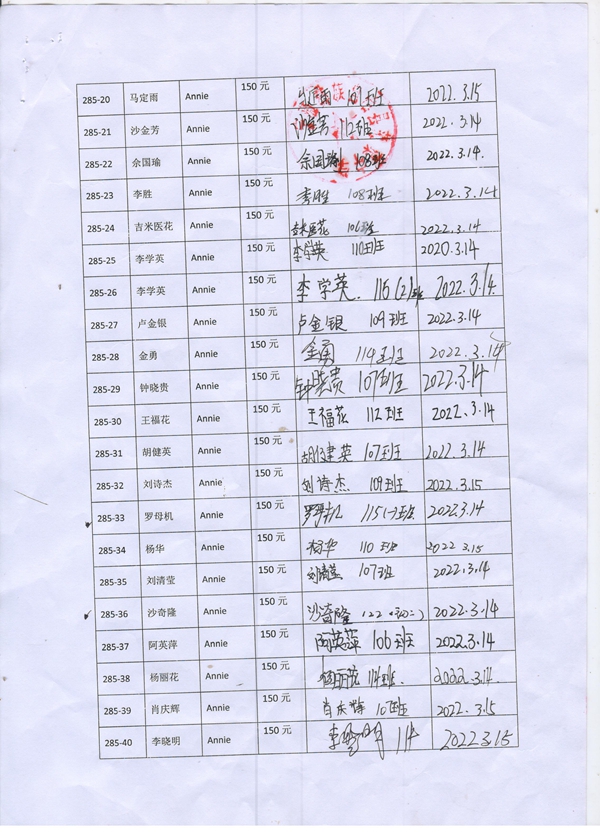 285-20 马定雨 Annie 150元 马定雨 107班 2022.3.15
285-21 沙金芳 Annie 150元 沙金芳 112班 2022.3.14
285-22 余国瑜 Annie 150元 余国瑜 108班 2022.3.14.
285-23 李胜 Annie 150元 李胜 108班 2022.3.14
285-24 吉米医花 Annie 150元 吉米医花 106班 2022.3.14
285-25 李学英 Annie 150元 李学英 110班 2020.3.14
285-26 李学英 Annie 150元 李学英. 116(2)班 2022.3.14.
285-27 卢金银 Annie 150元 卢金银 109班 2022.3.14
285-28 金勇 Annie 150元 金勇 114班 2022.3.14
285-29 钟晓贵 Annie 150元 钟晓贵 107班 2022.3.14
285-30 王福花 Annie 150元 王福花 112班 2022.3.14
285-31 胡健英 Annie 150元 胡健英 107班 2022.3.14
285-32 刘诗杰 Annie 150元 刘诗杰 109班 2022.3.15
285-33 罗母机 Annie 150元 罗母机 115(一)班 2022.3.14
285-34 杨华 Annie 150元 杨华 110班 2022 3.15
285-35 刘清莹 Annie 150元 刘清莹 107班 2022.3.14
285-36 沙奇隆 Annie 150元 沙奇隆 2022.3.14
285-37 阿英萍 Annie 150元 阿英萍 106班 2022.3.14
285-38 杨丽花 Annie 150元 杨丽花 114班. 2022.3.14
285-39 肖庆辉 Annie 150元 肖庆辉 107班 2022.3.15
285-40 李晓明 Annie 150元 李晓明 114 2022.3.15